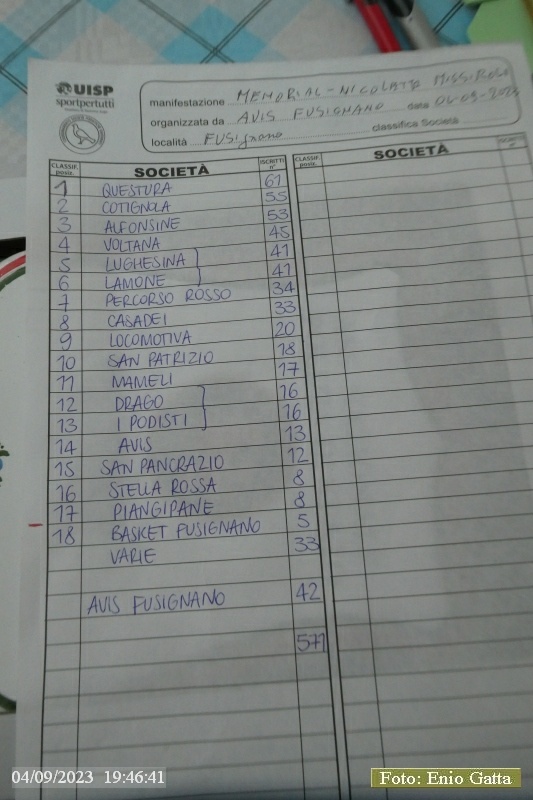 UISP
sportpertutti
manifestazione MEMORIAL - NICOLATO MISSIROLI
organizzata da AVIS FUSIGNANO data 04-09-2023
località FUSIGNANO classifica Società
CLASSIF. posiz. SOCIETÀ ISCRITTI n° CLASSIF. posiz. SOCIETÀ ISCRITTI n°
1 QUESTURA 61
2 COTIGNOLA 55
3 ALFONSINE 53
4 VOLTANA 45
5 LUGHESINA 41
6 LAMONE 41
7 PERCORSO ROSSO 34
8 CASADEI 33
9 LOCOMOTIVA 20
10 SAN PATRIZIO 18
11 MAMELI 17
12 DRAGO 16
13 I PODISTI 16
14 AVIS 13
15 SAN PANCRAZIO 12
16 STELLA ROSSA 8
17 PIANGIPANE 8
18 BASKET FUSIGNANO 5
VARIE 33
AVIS FUSIGNANO 42
571
04/09/2023 19:46:41
Foto: Enio Gatta